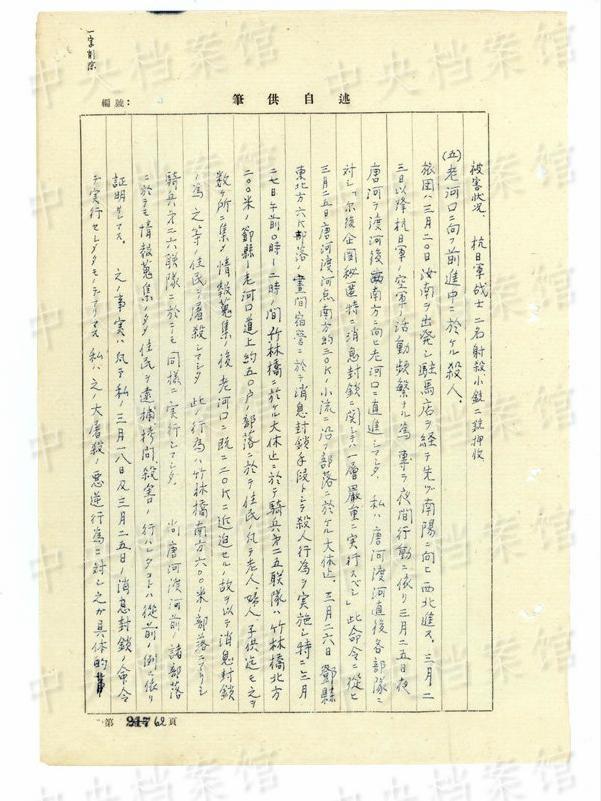 一字削除
編號:
述自供筆
被害状況、 抗日軍戦士 二名射殺小銃二銃押收
(五)老河口ニ向フ前進中ニ於ケル殺人、
旅団ハ三月二〇日汝南ヲ出発シ駐馬店ヲ経テ先ヅ南陽ニ向ヒ西北進ス、三月二
三日以降抗日軍ノ空軍ノ活動頻繁ナル為 専ラ夜間行動ニ依リ三月二五日夜
唐河ヲ渡河後 南方ニ向ヒ老河口ニ直進シマシタ 私ハ唐河渡河直後各部隊ニ
対シ「尓後企図秘匿特ニ消息封鎖ニ関シテハ一層厳重ニ実行スベシ」此命令ニ従ヒ
三月二五日唐河渡河点南方約二〇K小流ニ沿フ部落ニ於ケル大休止、三月二六日 鄧縣
東北方六K部落ノ晝間宿営ニ於テ消息封鎖手段トシテ殺人行為ヲ実施シ特ニ三月
二七日午前〇時–二時ノ間竹林橋ニ於ケル大休止ニ於テ騎兵第二五聯隊ハ竹林橋北方
二〇〇米ノ鄧縣–老河口道上約五〇戸ノ部落ニ於テ住民ノ凡テ老人、婦人 子供迄モ之ヲ
数ヶ所ニ集メ情報蒐集ノ後老河口ニ既ニ二〇Kニ近迫セルノ故ヲ以テ消息封鎖
ノ為之等ノ住民ヲ屠殺シマシタ 此ノ行為ハ竹林橋南方六〇〇米ノ部落ニアリシ
騎兵第二六聯隊ニ於テモ同様ニ実行シマシタ 尚唐河渡河前ノ諸部落
ニ於テモ情報蒐集ノタメ住民ヲ逮捕拷問殺害ノ行ハレタコトハ従前ノ例ニ依リ
証明サレマス、 之ノ事実ハ凡テ私ノ三月一八日及三月二五日ノ消息封鎖ノ命令
デ実行セレタモノデアリマス 私ハ之ノ大屠殺ノ悪逆行為ニ対シ之ガ具体的
第 62 頁